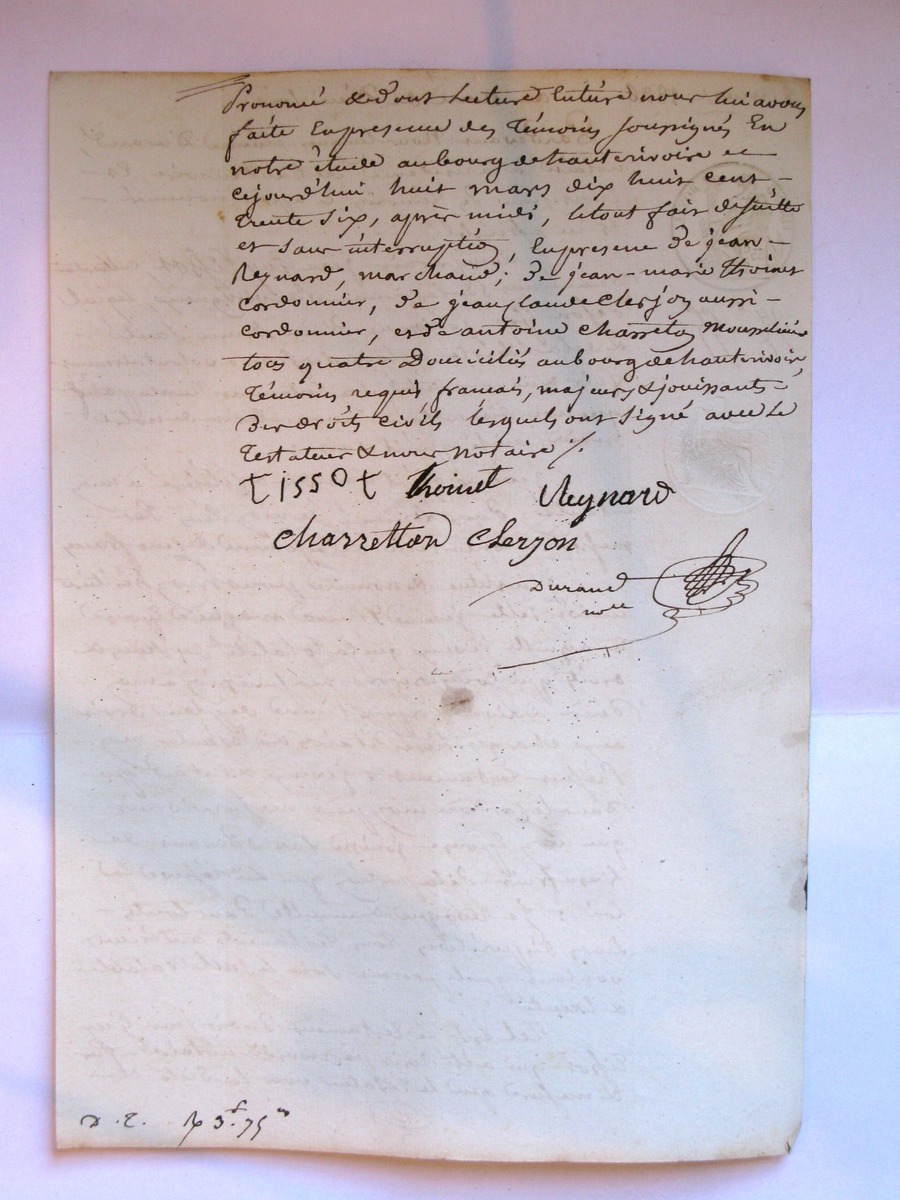 Prononcé & dont Lecture Entière nous lui avons
faite En présence des Témoins soussignés En
notre étude au bourg de hauterivoire ce
cejourd'hui huit mars dix huit cent –
trente six, après midi, le tout fait de suitte
et sans interruption, En présence De jean –
Reynard, marchand; de jean-marie Thoinet
cordonnier, de jean claude clerjon aussi –
cordonnier, et de antoine charreton mousselinier
tous quatre Domiciliés au bourg de hauterivoire,
Témoins requis français, majeurs & jouissants
Des droits civils lesquels ont signé avec Le
Testateur & nous notaire ./.
tissot thoinet Reynard
charretton Clerjon
Durand
nore
D. E. 3f. 75